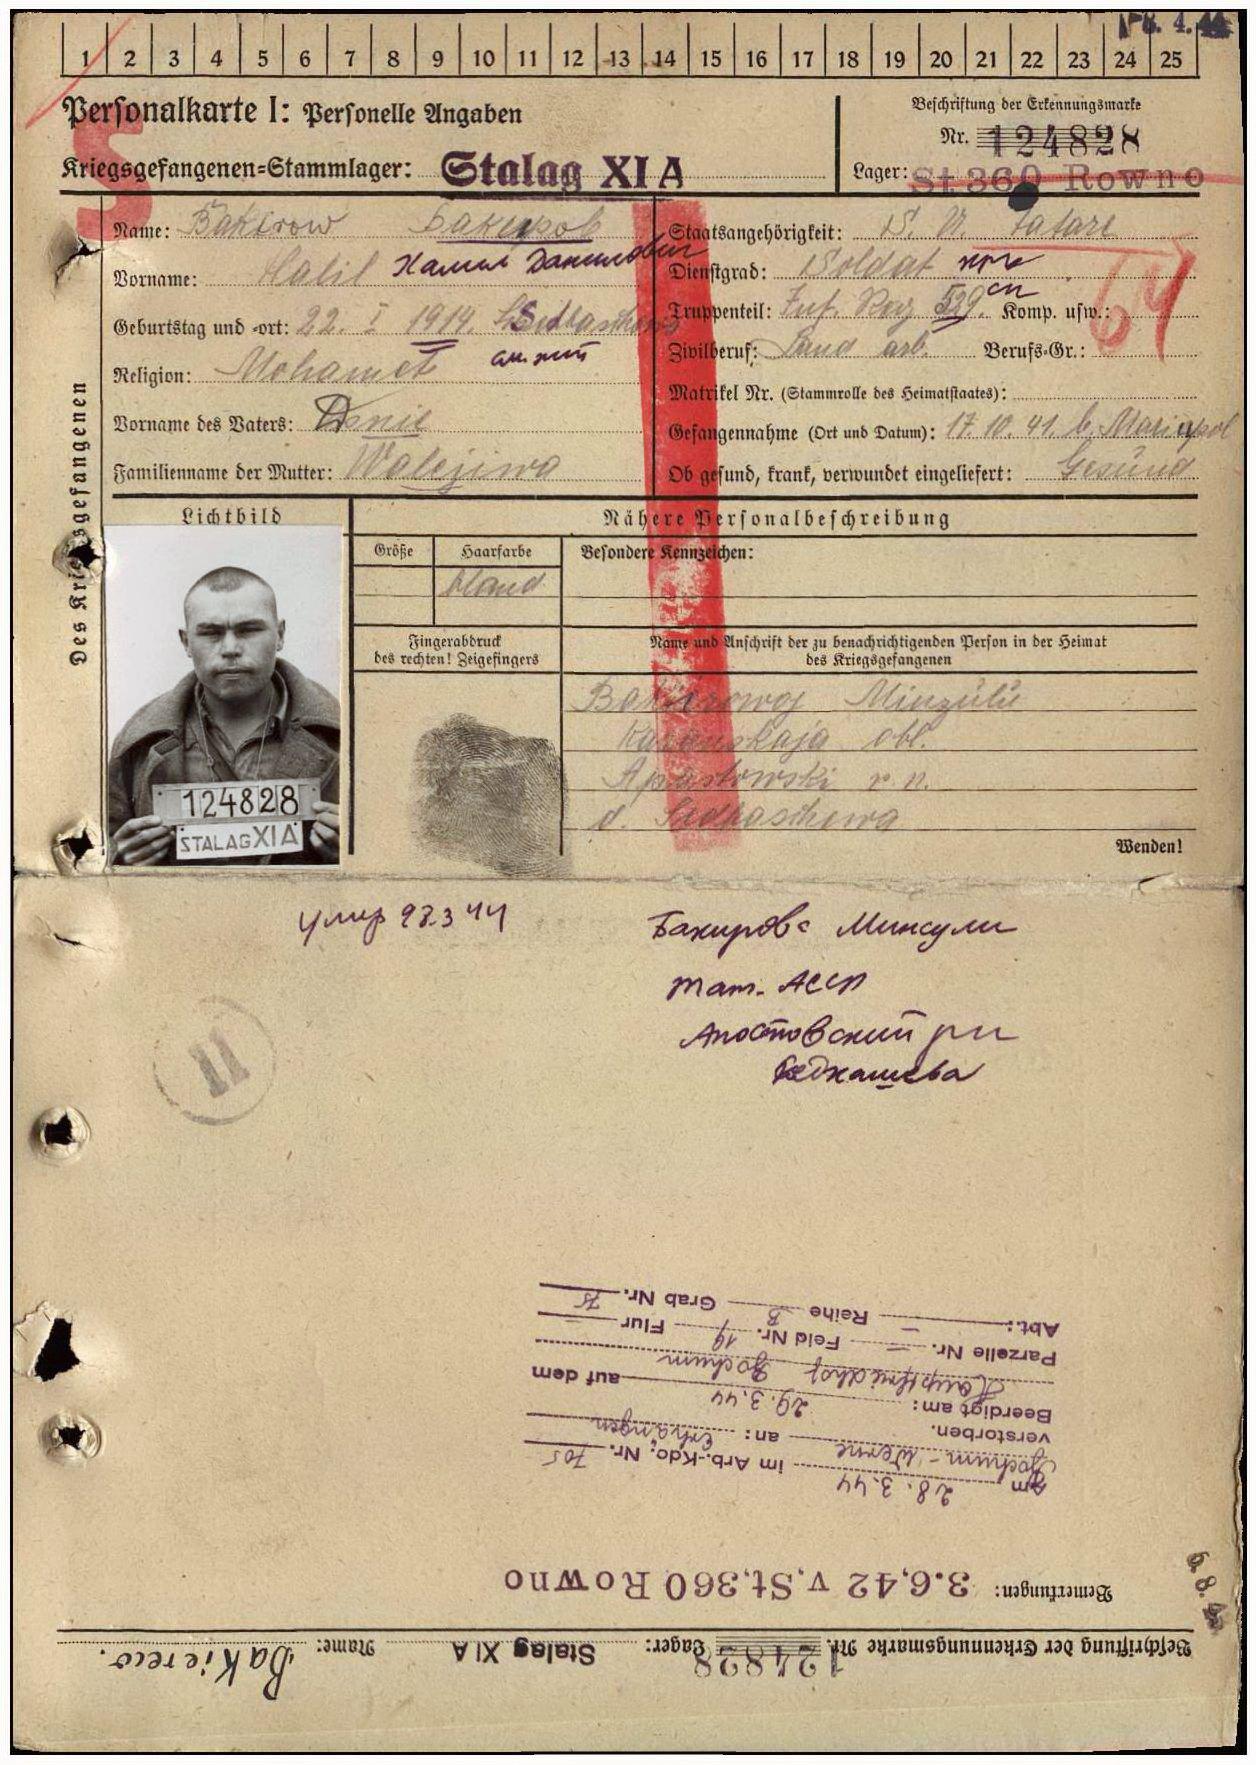 8. 4. 44
1 2 3 4 5 6 7 8 9 10 11 12 13 14 15 16 17 18 19 20 21 22 23 24 25
Personalkarte I: Personelle Angaben
Kriegsgefangenen=Stammlager: Stalag XI A
Beschriftung der Erkennungsmarke
Nr. 124828
Lager: St 360 Rowno
S
Des Kriegsgefangenen
Name: Bakirow Бакиров
Vorname: Halil Халил Данилович
Geburtstag und =ort: 22. I 1914.
Religion: Mohamet
Vorname des Vaters: Danil
Familienname der Mutter: Walejiwa
Staatsangehörigkeit: S. U. Tatare
Dienstgrad: Soldat кр-ц
Truppenteil: Inf. Reg 529. сп Komp. usw.:
64
Zivilberuf: Land arb. Berufs=Gr.:
Matrikel Nr. (Stammrolle des Heimatstaates):
Gefangennahme (Ort und Datum): 17. 10. 41. b. Mariupol
Ob gesund, krank, verwundet eingeliefert: Gesund
Lichtbild
Nähere Personalbeschreibung
Größe
Haarfarbe
Besondere Kennzeichen:
bland
Fingerabdruck
des rechten! Zeigefingers
Name und Anschrift der zu benachrichtigenden Person in der Heimat
des Kriegsgefangenen
Bakirowoj Minzülü
Kasanskaja obl.
Apastowski r n.
d. Sedkaschewa
124828
STALAG XI A
Wenden!
умер 28.3 44
Бакирова Минсули
Тат. АССР
Апостовский р-н
Бедкашева
II
Abt.: — Reihe B Grab Nr. 75
Parzelle Nr. — Feld Nr. 19 Flur —
Hauptfriedhof Bochum
Beerdigt am: 29. 3. 44 auf dem
verstorben. an: Erhängen
Bochum - Werne im Arb.-Kdo. Nr. 705
Am 28. 3. 44
Bemerkungen: 3.6.42 v. St. 360 Rowno
Beschriftung der Erkennungsmarke Nr. 124828 Lager: Stalag XI A Name: Bakierew.